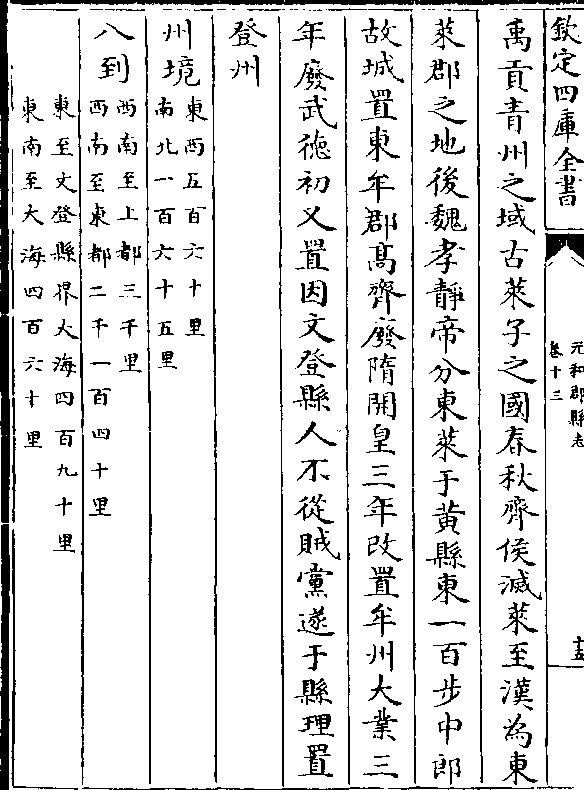 欽定四庫全書
元和郡縣志
卷十三
十五
禹貢青州之域古萊子之國春秋齊侯滅萊至漢為東
萊郡之地後魏孝靜帝分東萊于黃縣東一百步中郎
故城置東牟郡髙齊廢隋開皇三年改置牟州大業三
年廢武徳初又置因文登縣人不從賊黨遂于縣理置
登州
州境
東西五百六十里
南北一百六十五里
八到
西南至上都三千里
西南至東都二千一百四十里
東至文登縣界大海四百九十里
東南至大海四百六十里